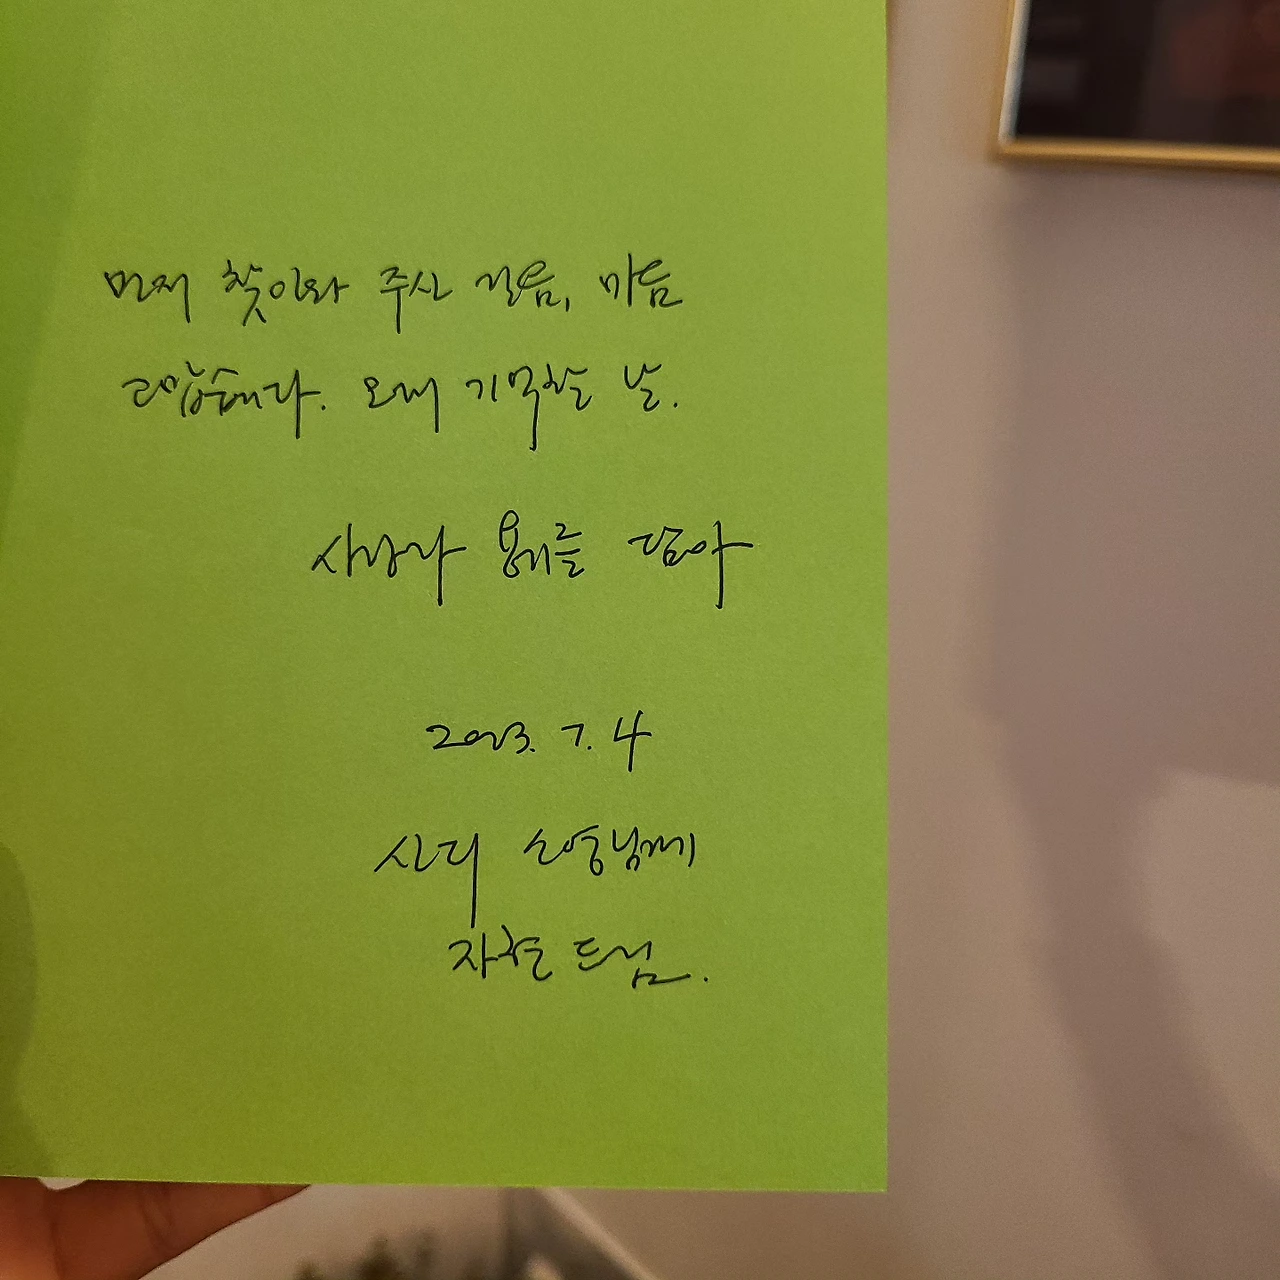 먼저 찾아와 주신 걸음, 마음
고맙습니다. 오래 기억할 날.
사랑과 용기를 담아
2023. 7. 4
신디 선생님께
드림.